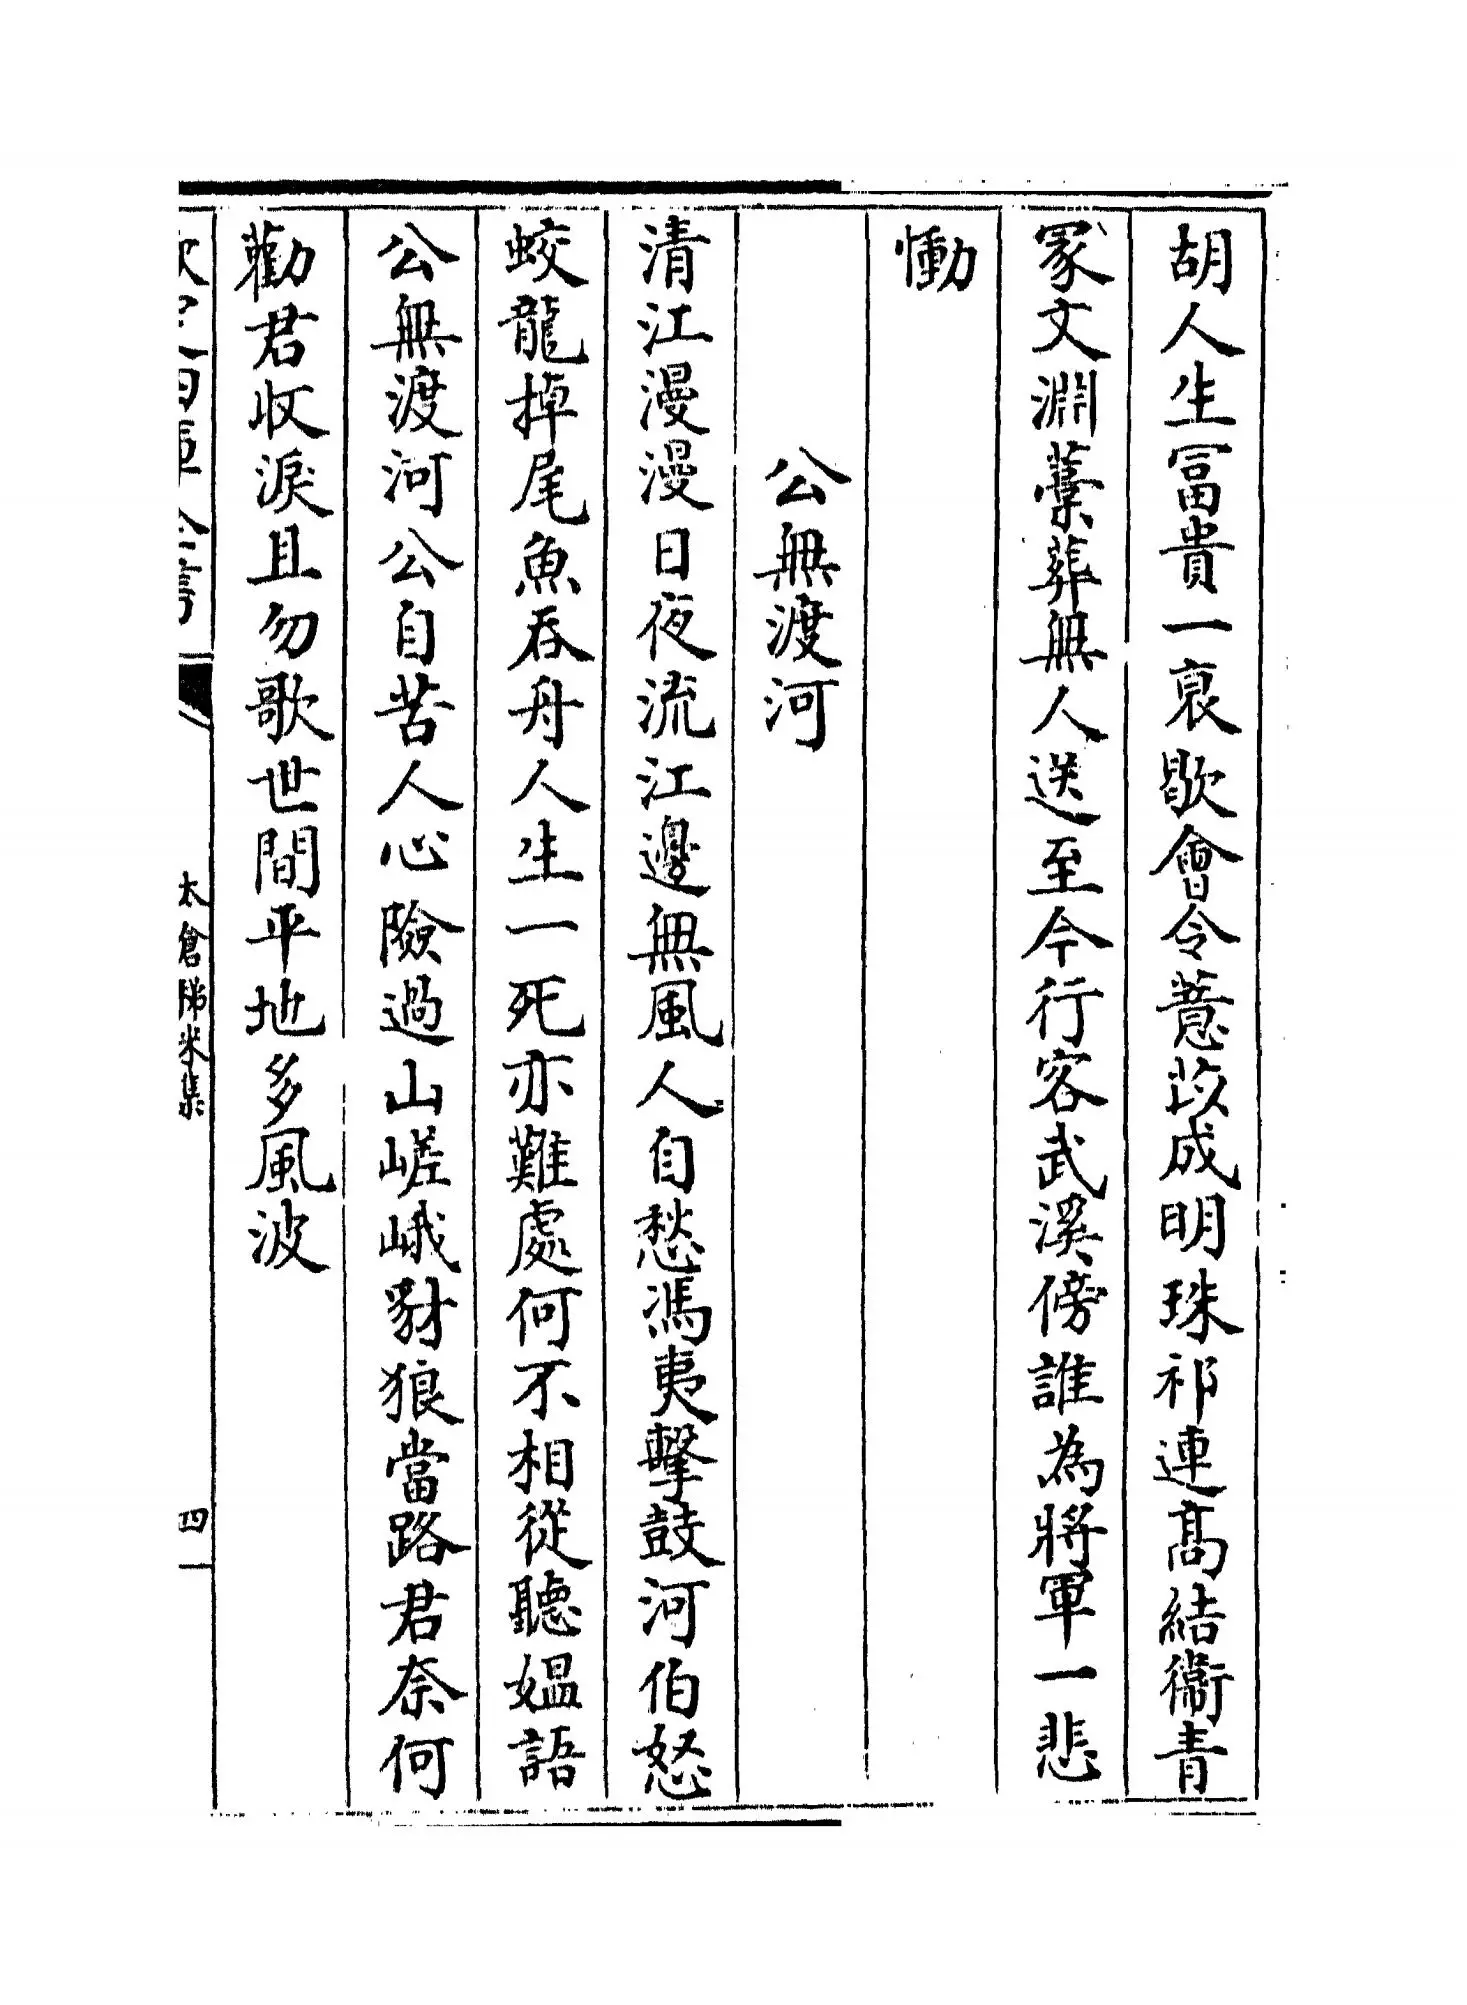 胡人生冨貴一衰歇會令薏苡成明珠祁連髙結衞青
冢文淵藁葬無人送至今行客武溪傍誰為將軍一悲
慟
公無渡河
清江漫漫日夜流江邊無風人自愁馮夷擊鼓河伯怒
蛟龍掉尾魚吞舟人生一死亦難處何不相從聽媼語
公無渡河公自苦人心險過山嵯峨豺狼當路君奈何
勸君收淚且勿歌世間平地多風波
欽定四庫全書
太倉稊米集
四一